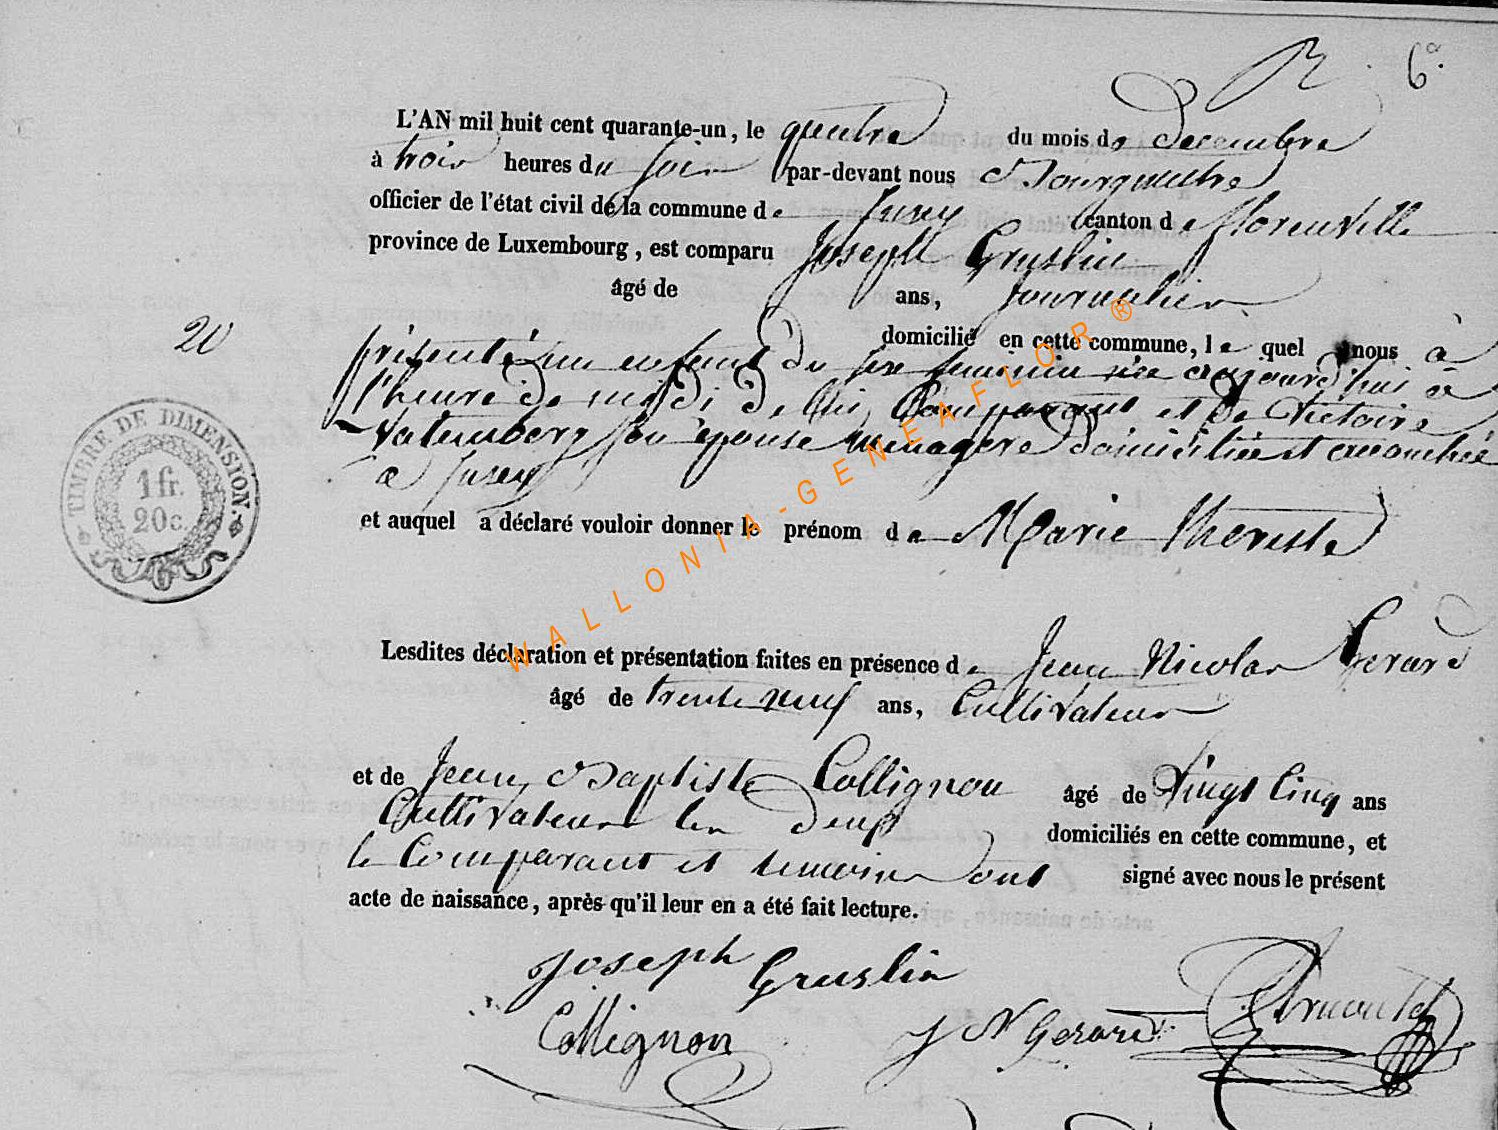 6e.
L'AN mil huit cent quarante-un, le quatre du mois de Decembre
à trois heures du soir par-devant nous Bourguestre
officier de l'état civil de la commune de Jusey canton de florenville
province de Luxembourg, est comparu Joseph Gruslin
âgé de ans, Journalier
domicilié en cette commune, le quel nous à
20
présenté un enfant du sex feminin née aujourd'hui à
l'heure de midi de lui Comparant et de Victoire
Vatemberg son épouse menagere domiciliée et accouchée
a Jusey
et auquel a déclaré vouloir donner le prénom de Marie therese
TIMBRE DE DIMENSION.
1 fr.
20 c.
Lesdites déclaration et présentation faites en présence de Jean Nicolas Gerard
âgé de trente neuf ans, Cultivateur
et de Jean Baptiste Collignon âgé de Vingt Cinq ans
Cultivateur les deux domiciliés en cette commune, et
le Comparant et temoins ont signé avec nous le présent
acte de naissance, après qu'il leur en a été fait lecture.
Joseph Gruslin
Collignon J N Gerard
WALLONIA-GENEAFLOR ®